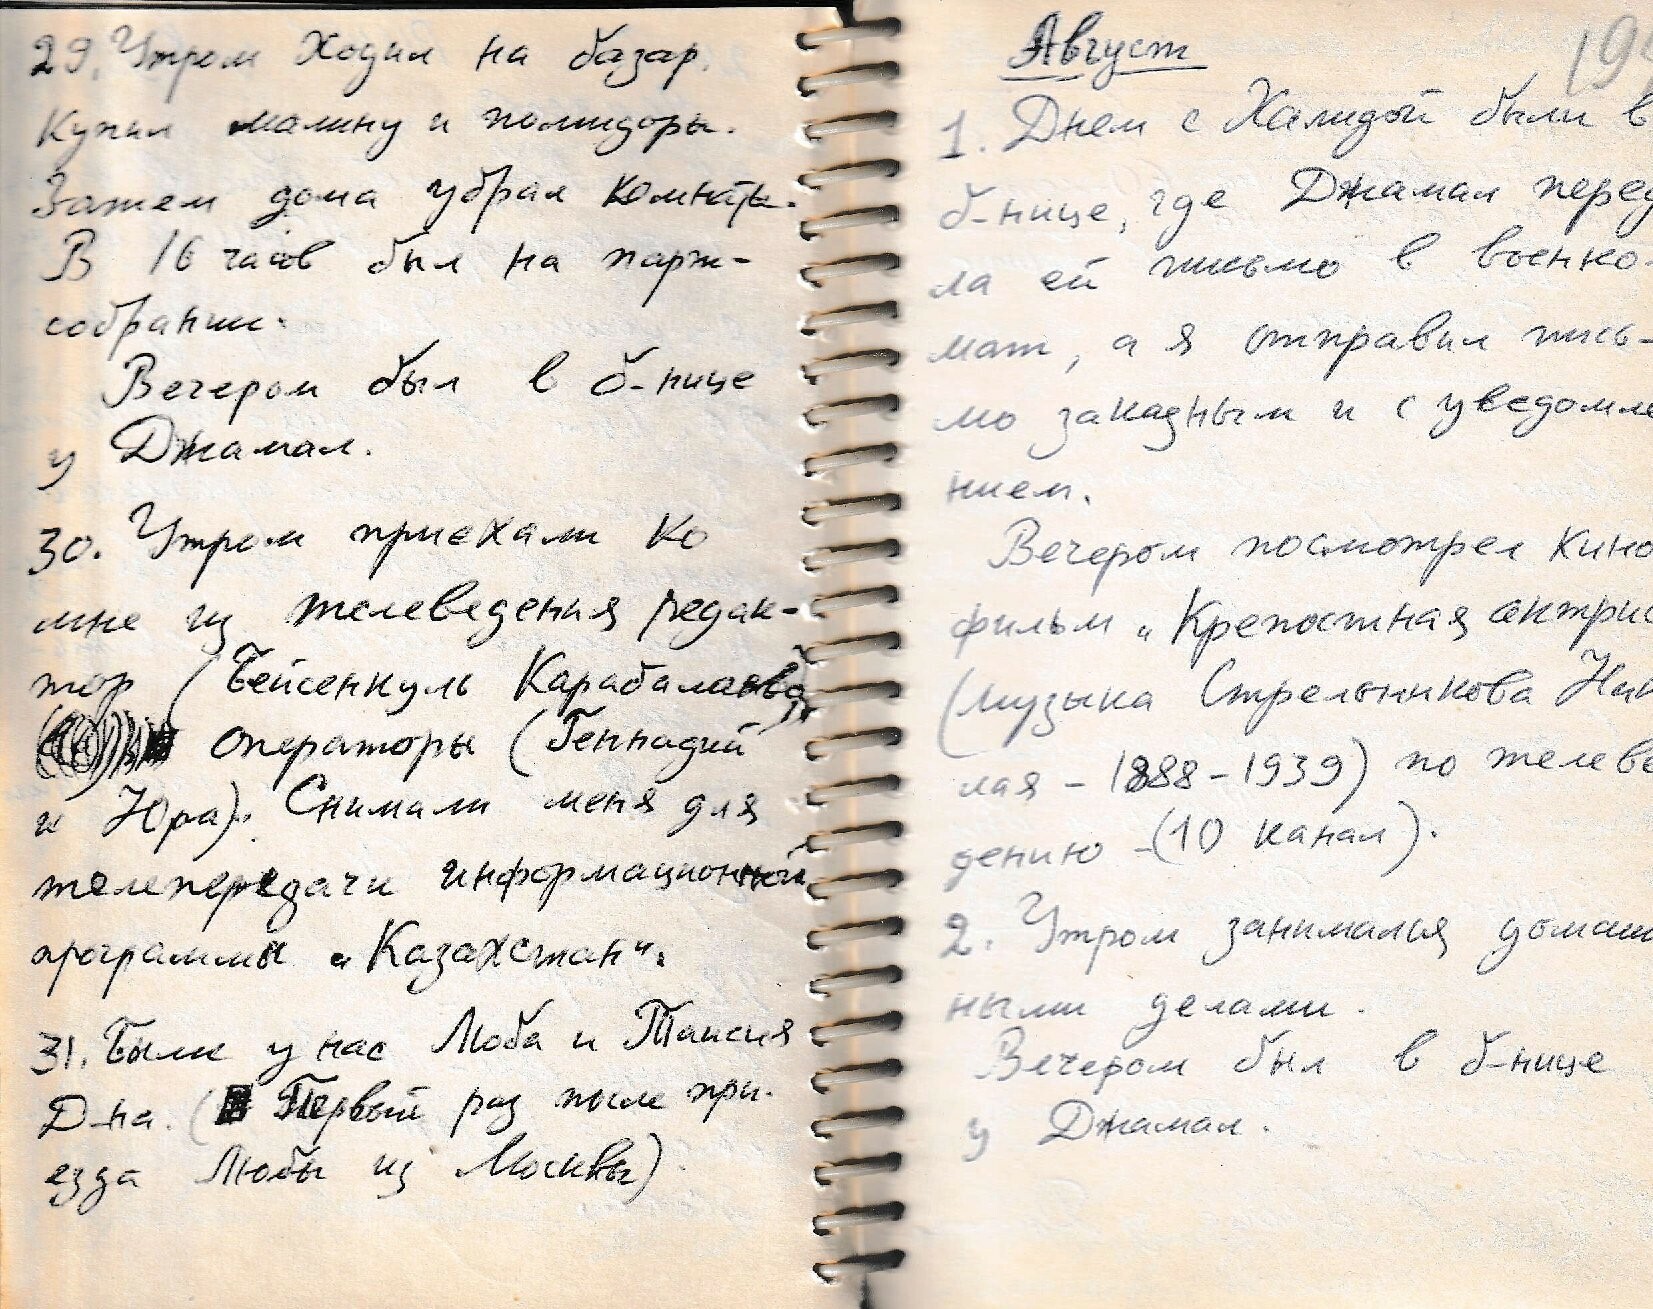 29. Утром ходил на базар.
Купил малину и помидоры.
Затем дома убрал комнаты.
В 16 часов был на парт-
собрании.
Вечером был в б-нице
у Джамал.
30. Утром приехали ко
мне из телеведения редак-
тор (Бейсенкуль Карабалаева)
операторы (Геннадий
и Юра). Снимали меня для
телепередачи информационной
программы „Казахстан".
31. Были у нас Люба и Таисия
Д-на. (Первый раз после при-
езда Любы из Москвы)
Август
19
1. Днем с Халидой были в
б-нице, где Джамал переда
ла ей письмо в военко-
мат, а я отправил пись-
мо заказным и с уведомле
нием.
Вечером посмотрел кино
фильм „Крепостная актрис
(музыка Стрельникова Ник
лая - 1888-1939) по телеве
дению - (10 канал).
2. Утром занимался домаш
ными делами.
Вечером был в б-нице
у Джамал.